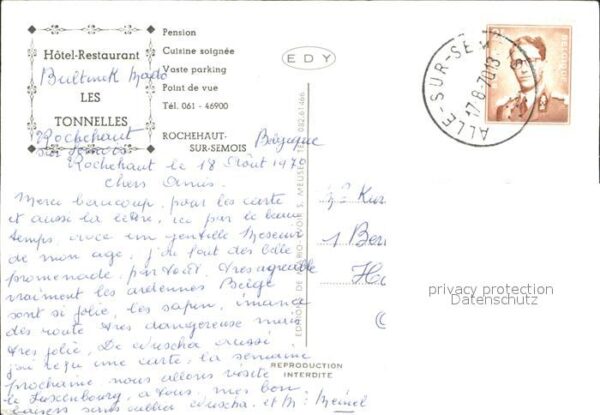 Hôtel-Restaurant
LES
TONNELLES
Pension
Cuisine soignée
Vaste parking
Point de vue
Tél. 061 - 46900
ROCHEHAUT-
SUR-SEMOIS
EDY
ALLE-SUR-SEM
17-8-70
BELGIQUE
Bultinck Mado
Rochehaut
sur Semois
Belgique
Rochehaut le 18 Août 1970
Chers Amis.
Merci beaucoup, pour les carte
et aussi la lettre, ici par le beau
temps, avec un gentille Meseur
de mon age, j'ai fait des belle
promenade, par tout, très agreable
vraiment les ardennes Belge
sont si jolie, les sapin,
des route très dangereuse mais
très jolie, De aussi
j'ai reçu une carte, la semaine
prochaine nous allons visite
le Luxembourg, a vous, mes bon
baisers sans oublier et Mr Meinel
Mr Kur
1 Ber
Ha
EDITIONS DE S. MEUSE TEL. 082.61466
REPRODUCTION
INTERDITE
privacy protection
Datenschutz